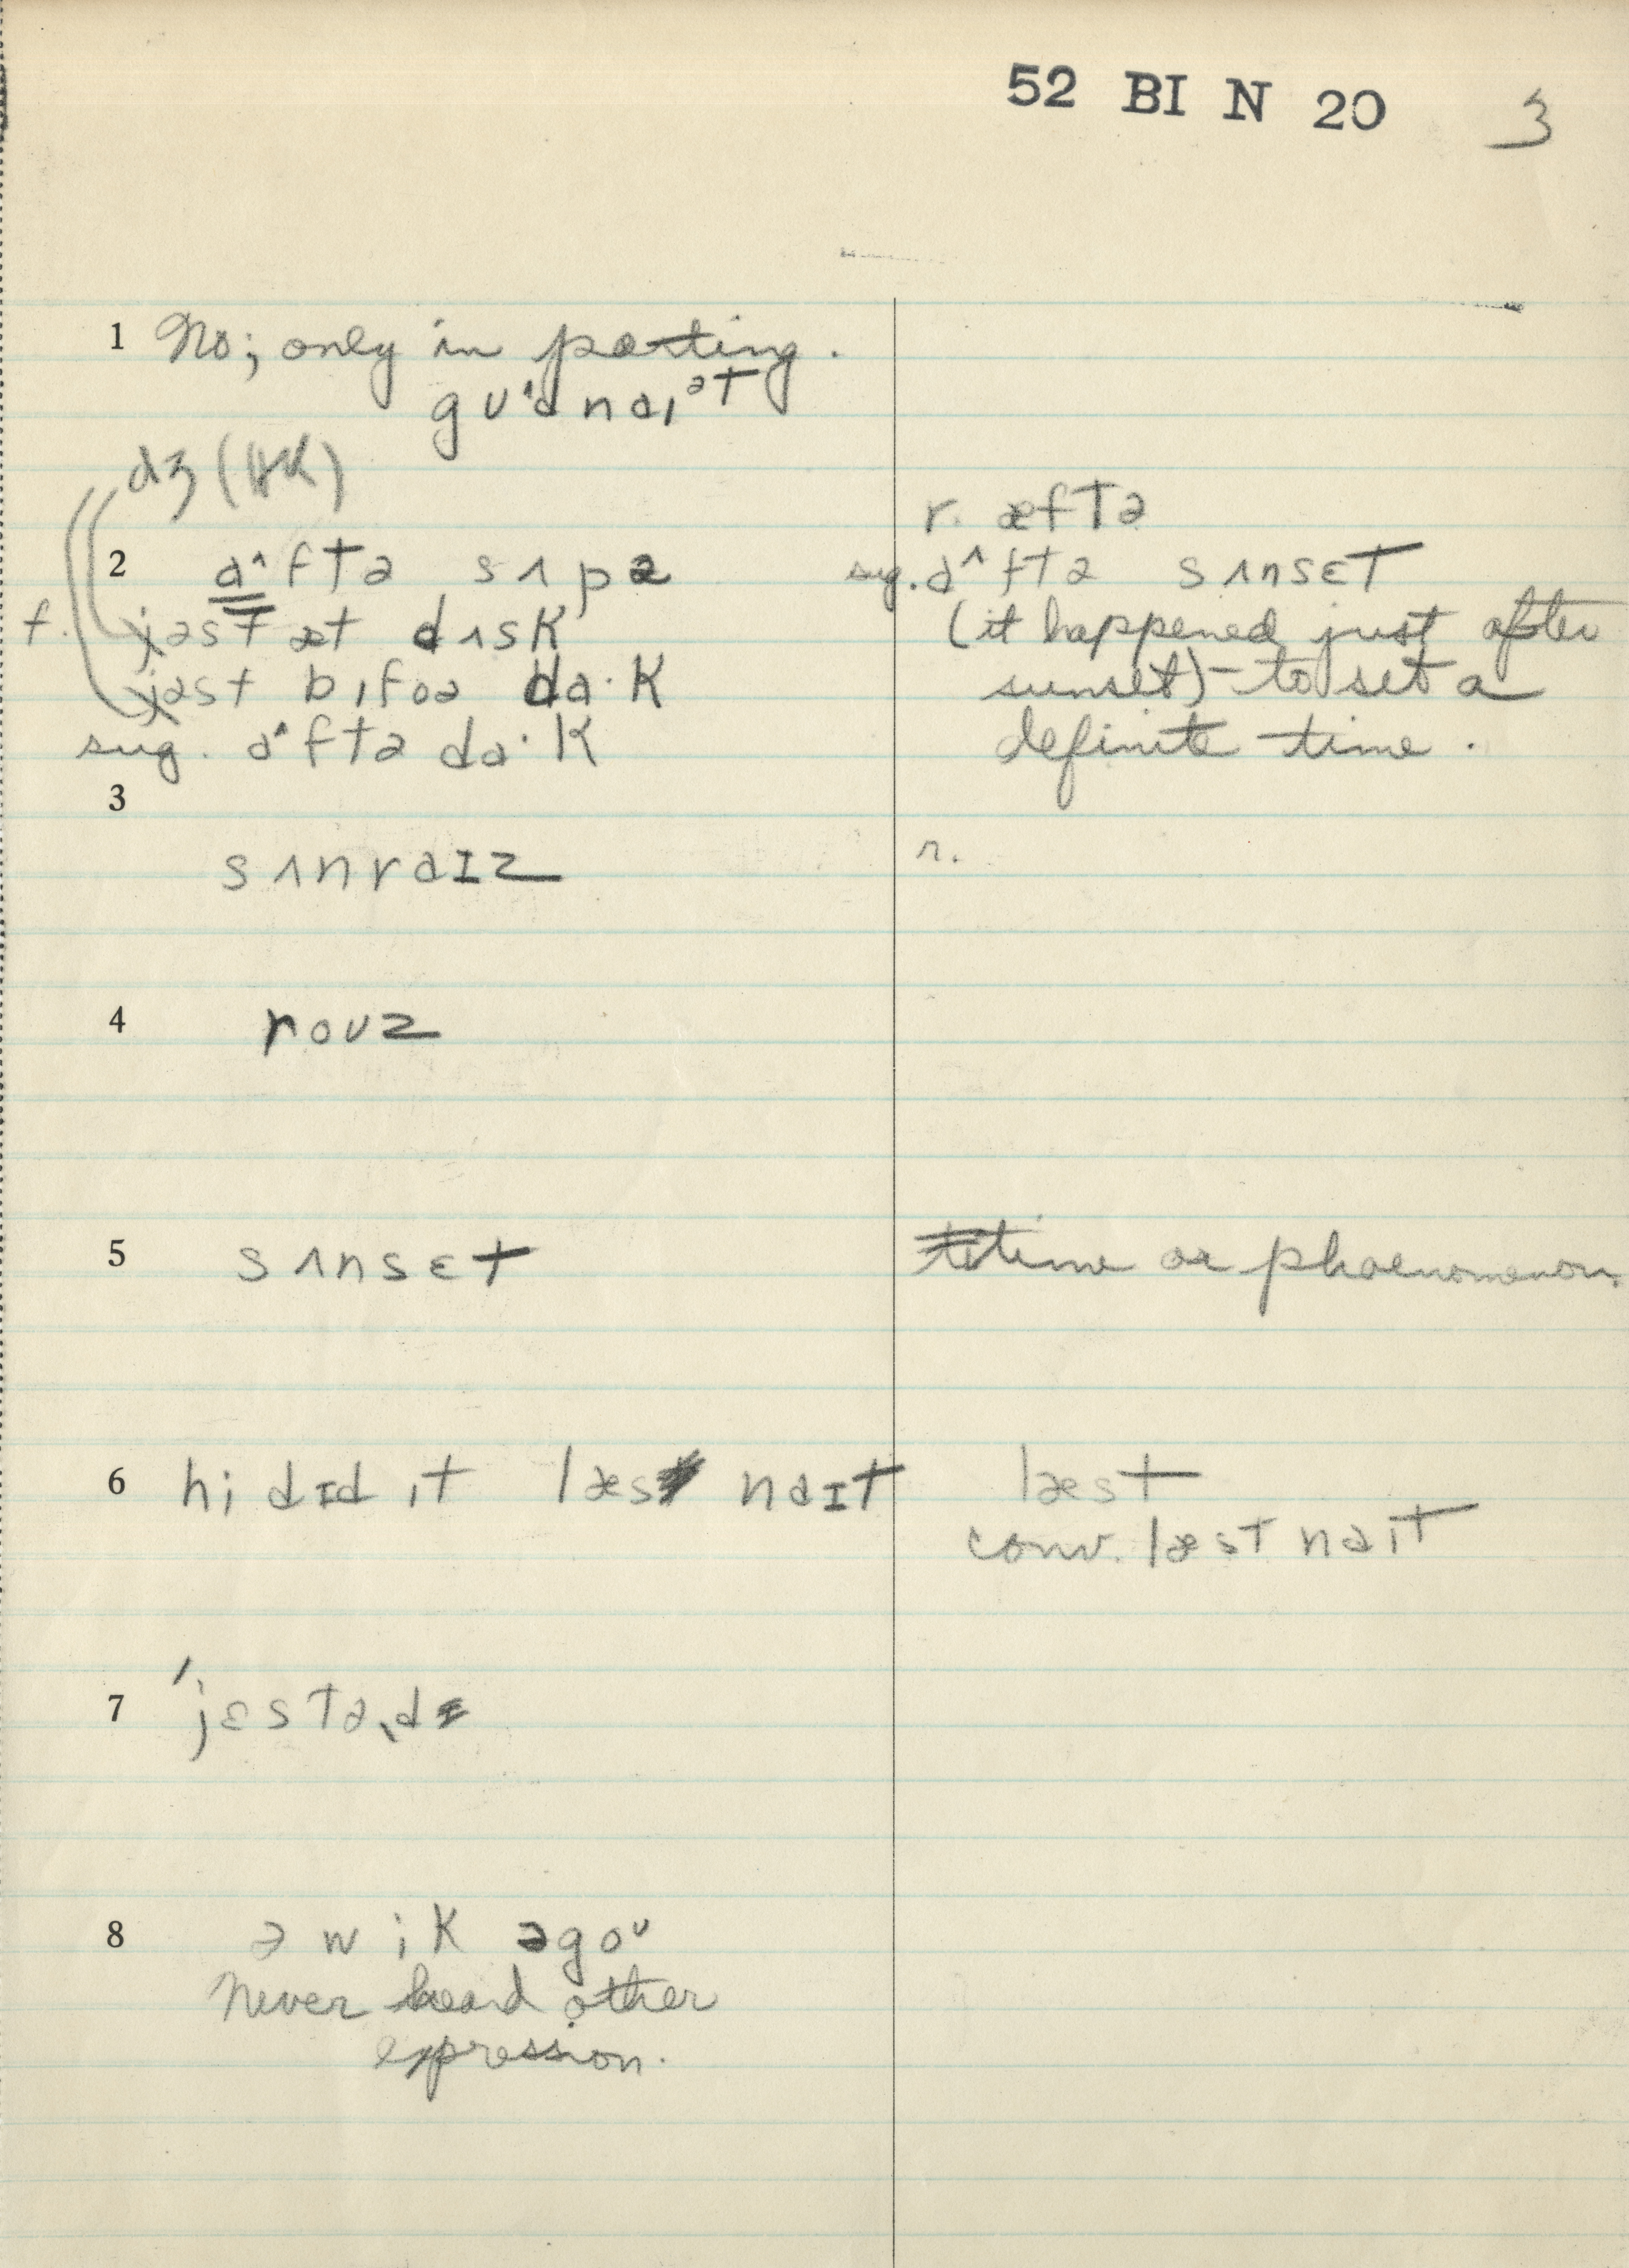 52 BI N 20 3
1 No; only in parting.
gʊ^d nɑɪət
dʒ (HK)
r. æftə
2 a^ftə sʌpə
sug. a^ftə sʌnsɛt
f. jəst æt dʌsk
(it happened just after
jəst bɪfoə da·k
sunset) – to set a
sug. a^ftə da·k
definite time.
3
sʌnraɪz
r.
4 roʊz
5 sʌnsɛt
time or phaenomenon.
6 hi dɪd ɪt læs naɪt
læst
conv. læst naɪt
7 'jɛstəˌdɪ
8 ə wik əgoʊ
Never heard other
expression.